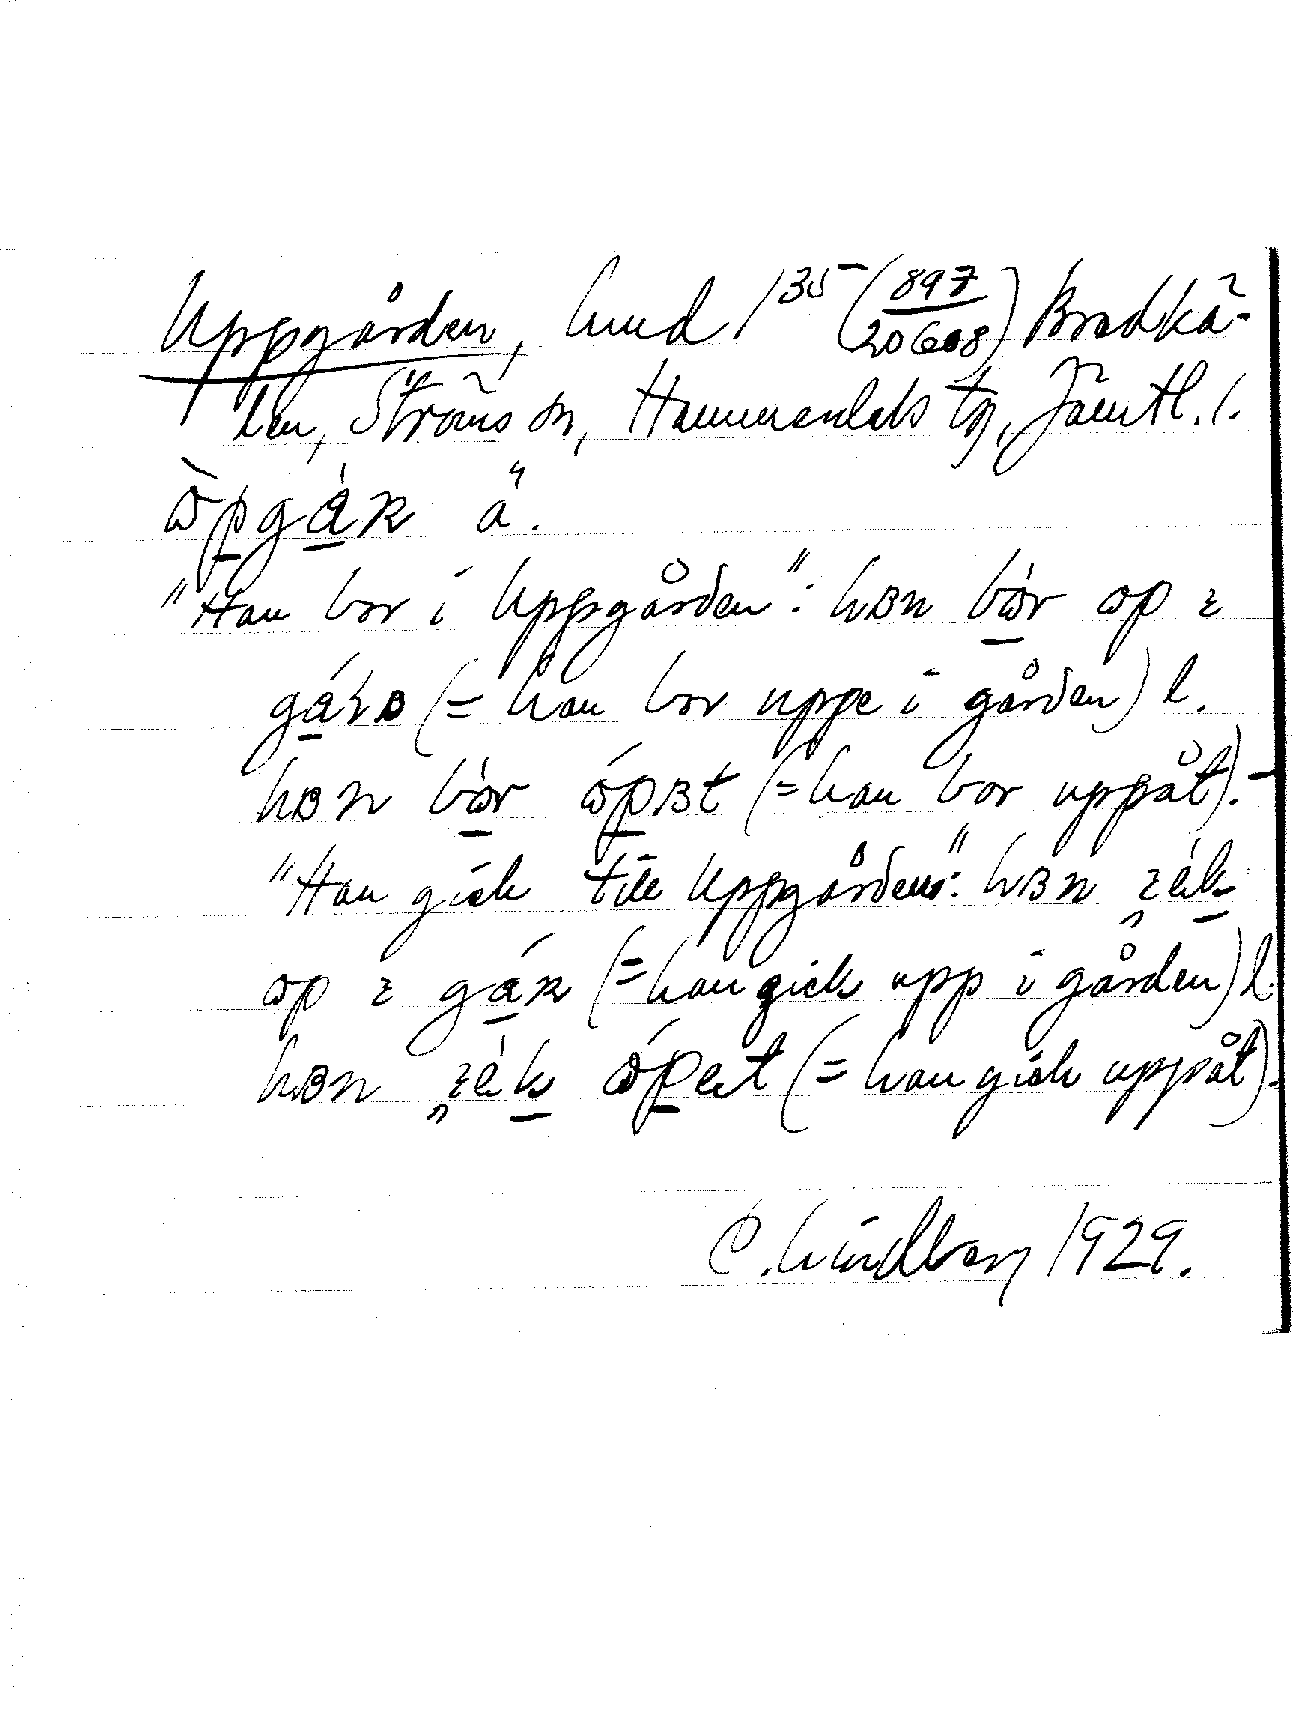 Uppgården, hmd 1³⁵ (897/20608) Bredkä-
len, Ströms sn, Hammerdals tg, Jämtl. l.
ɷ̀pgáɴ ä.
"Han bor i Uppgården": hʙn bɷ́r ɷp ɪ
gáɴʙ (= han bor uppe i gården) l.
hʙn bɷ́r ɷ́pʙt (= han bor uppåt). -
"Han gick till Uppgården": hʙn
ɷp ɪ gáɴ (= han gick upp i gården) l.
hʙn ɷ́pet (= han gick uppåt).
C. Lindberg 1929.